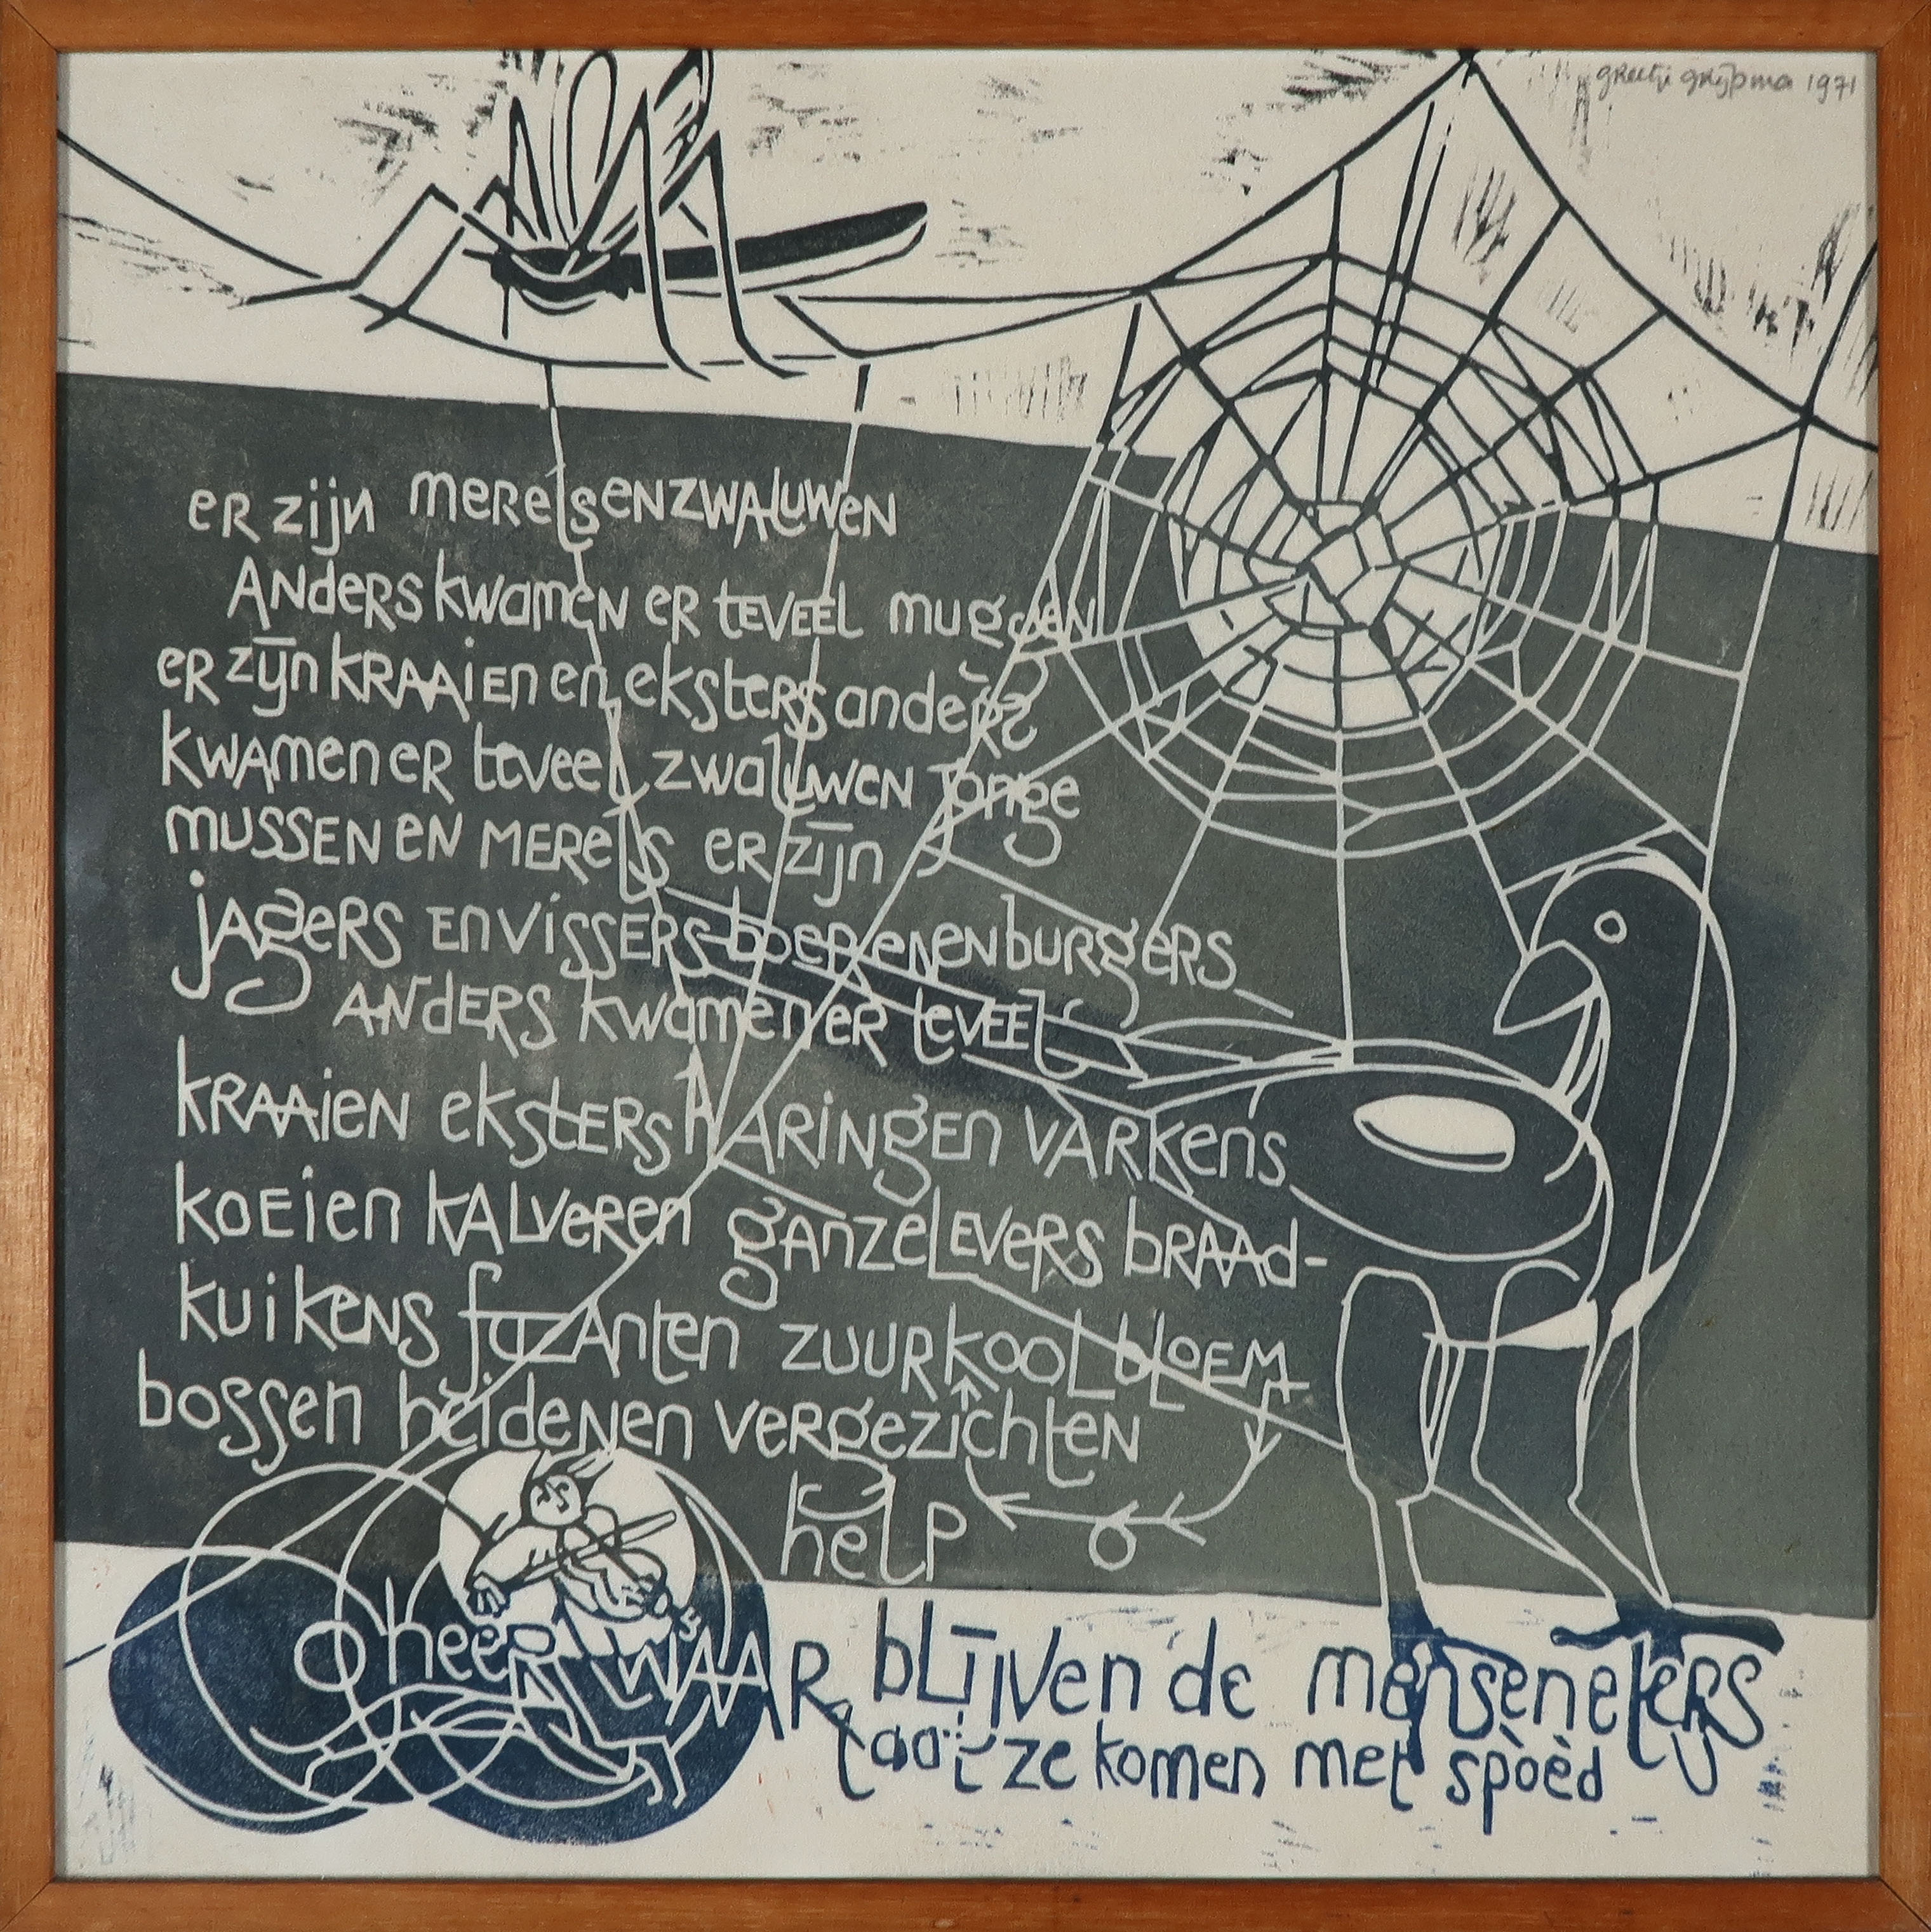 greetje grijpma 1971
er zijn merels en zwaluwen
Anders kwamen er teveel muggen
er zijn kraaien en eksters anders
kwamen er teveel zwaluwen jonge
mussen en merels er zijn
jagers en vissers boeren en burgers
anders kwamen er teveel
kraaien eksters haringen varkens
koeien kalveren ganzelevers braad-
kuikens fazanten zuurkool bloem
bossen heidenen vergezichten
help
o heer waar blijven de menseneters
laat ze komen met spoed